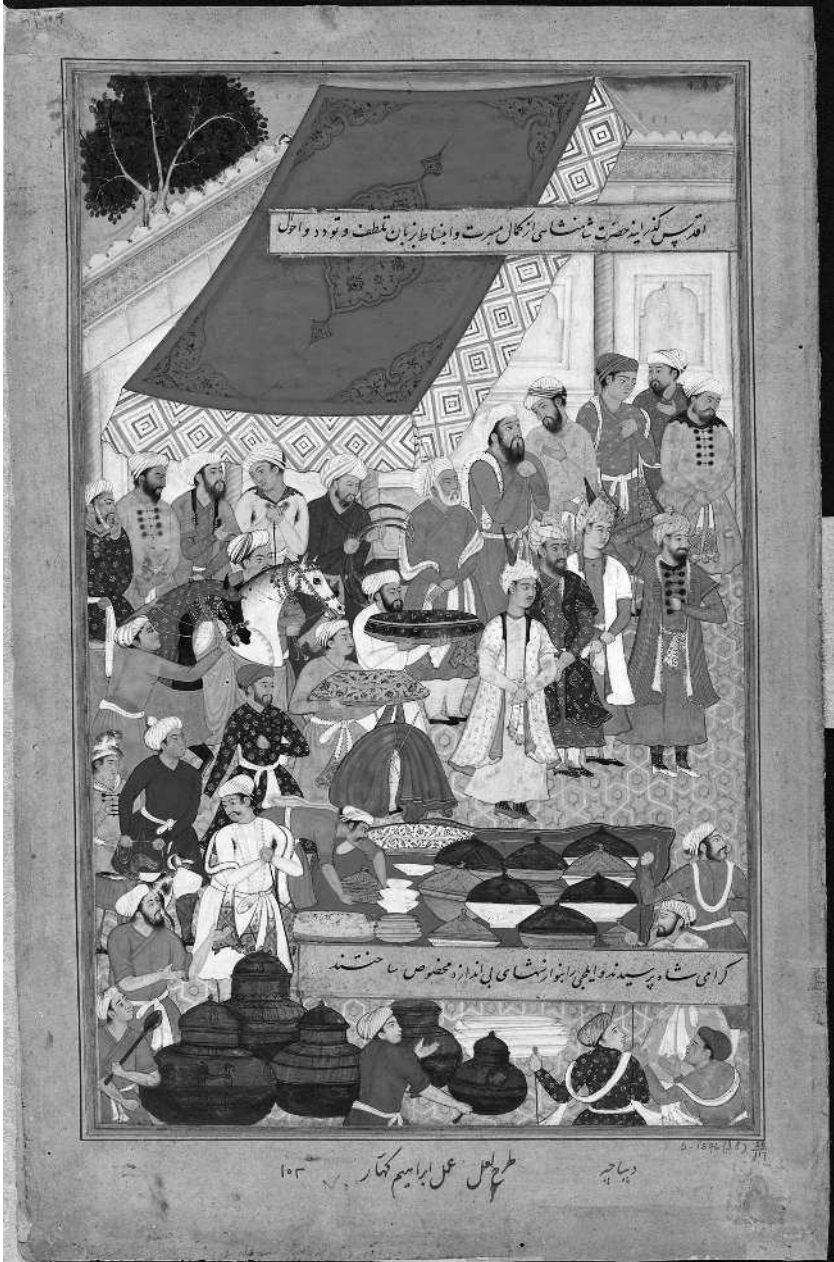 اقدس گذرانید حضرت شاهنشاهی از کمال مسرت و انبساط بزبان تلطف و تودد و احوال
گرامی شاه پرسیدند و ایلچی را بنوازشهای بی اندازه مخصوص ساختند
دیباچه
طرح لعل عمل ابراهیم کهار
۱۰۳